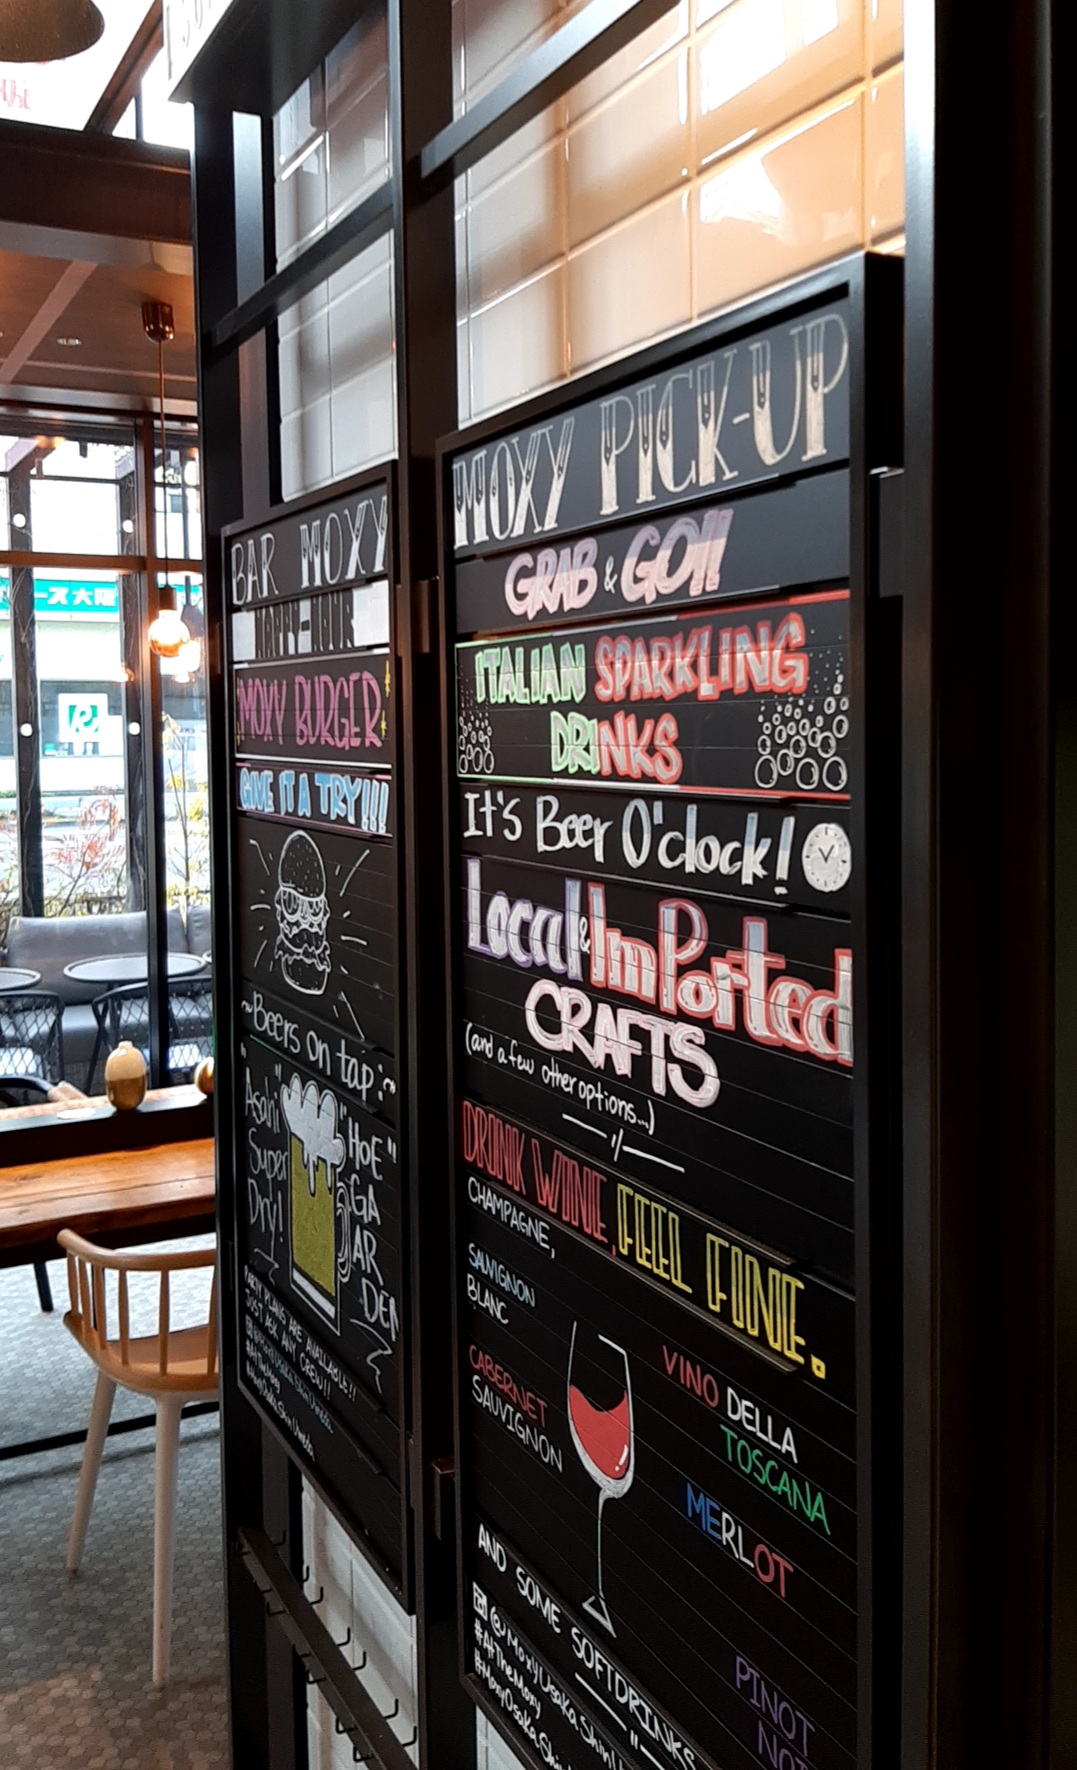 ーズ大阪
BAR MOXY
MOXY BURGER
GIVE IT A TRY!!!
~Beers on tap:~
"Asahi
Super
Dry!
"HOE"
GA
AR
DEN
PARTY PLANS ARE AVAILABLE!!
JUST ASK ANY CREW!!
#AtTheMoxy
#MoxyOsakaShinUmeda
MOXY PICK-UP
GRAB & GO!!
ITALIAN SPARKLING
DRINKS
It's Beer O'clock!
Local & Imported
CRAFTS
(and a few other options...)
DRINK WINE, FEEL FINE.
CHAMPAGNE,
SAUVIGNON
BLANC
CABERNET
SAUVIGNON
VINO DELLA
TOSCANA
MERLOT
PINOT
AND SOME SOFTDRINKS
@MoxyOsakaShin
#AtTheMoxy
#MoxyOsakaShin